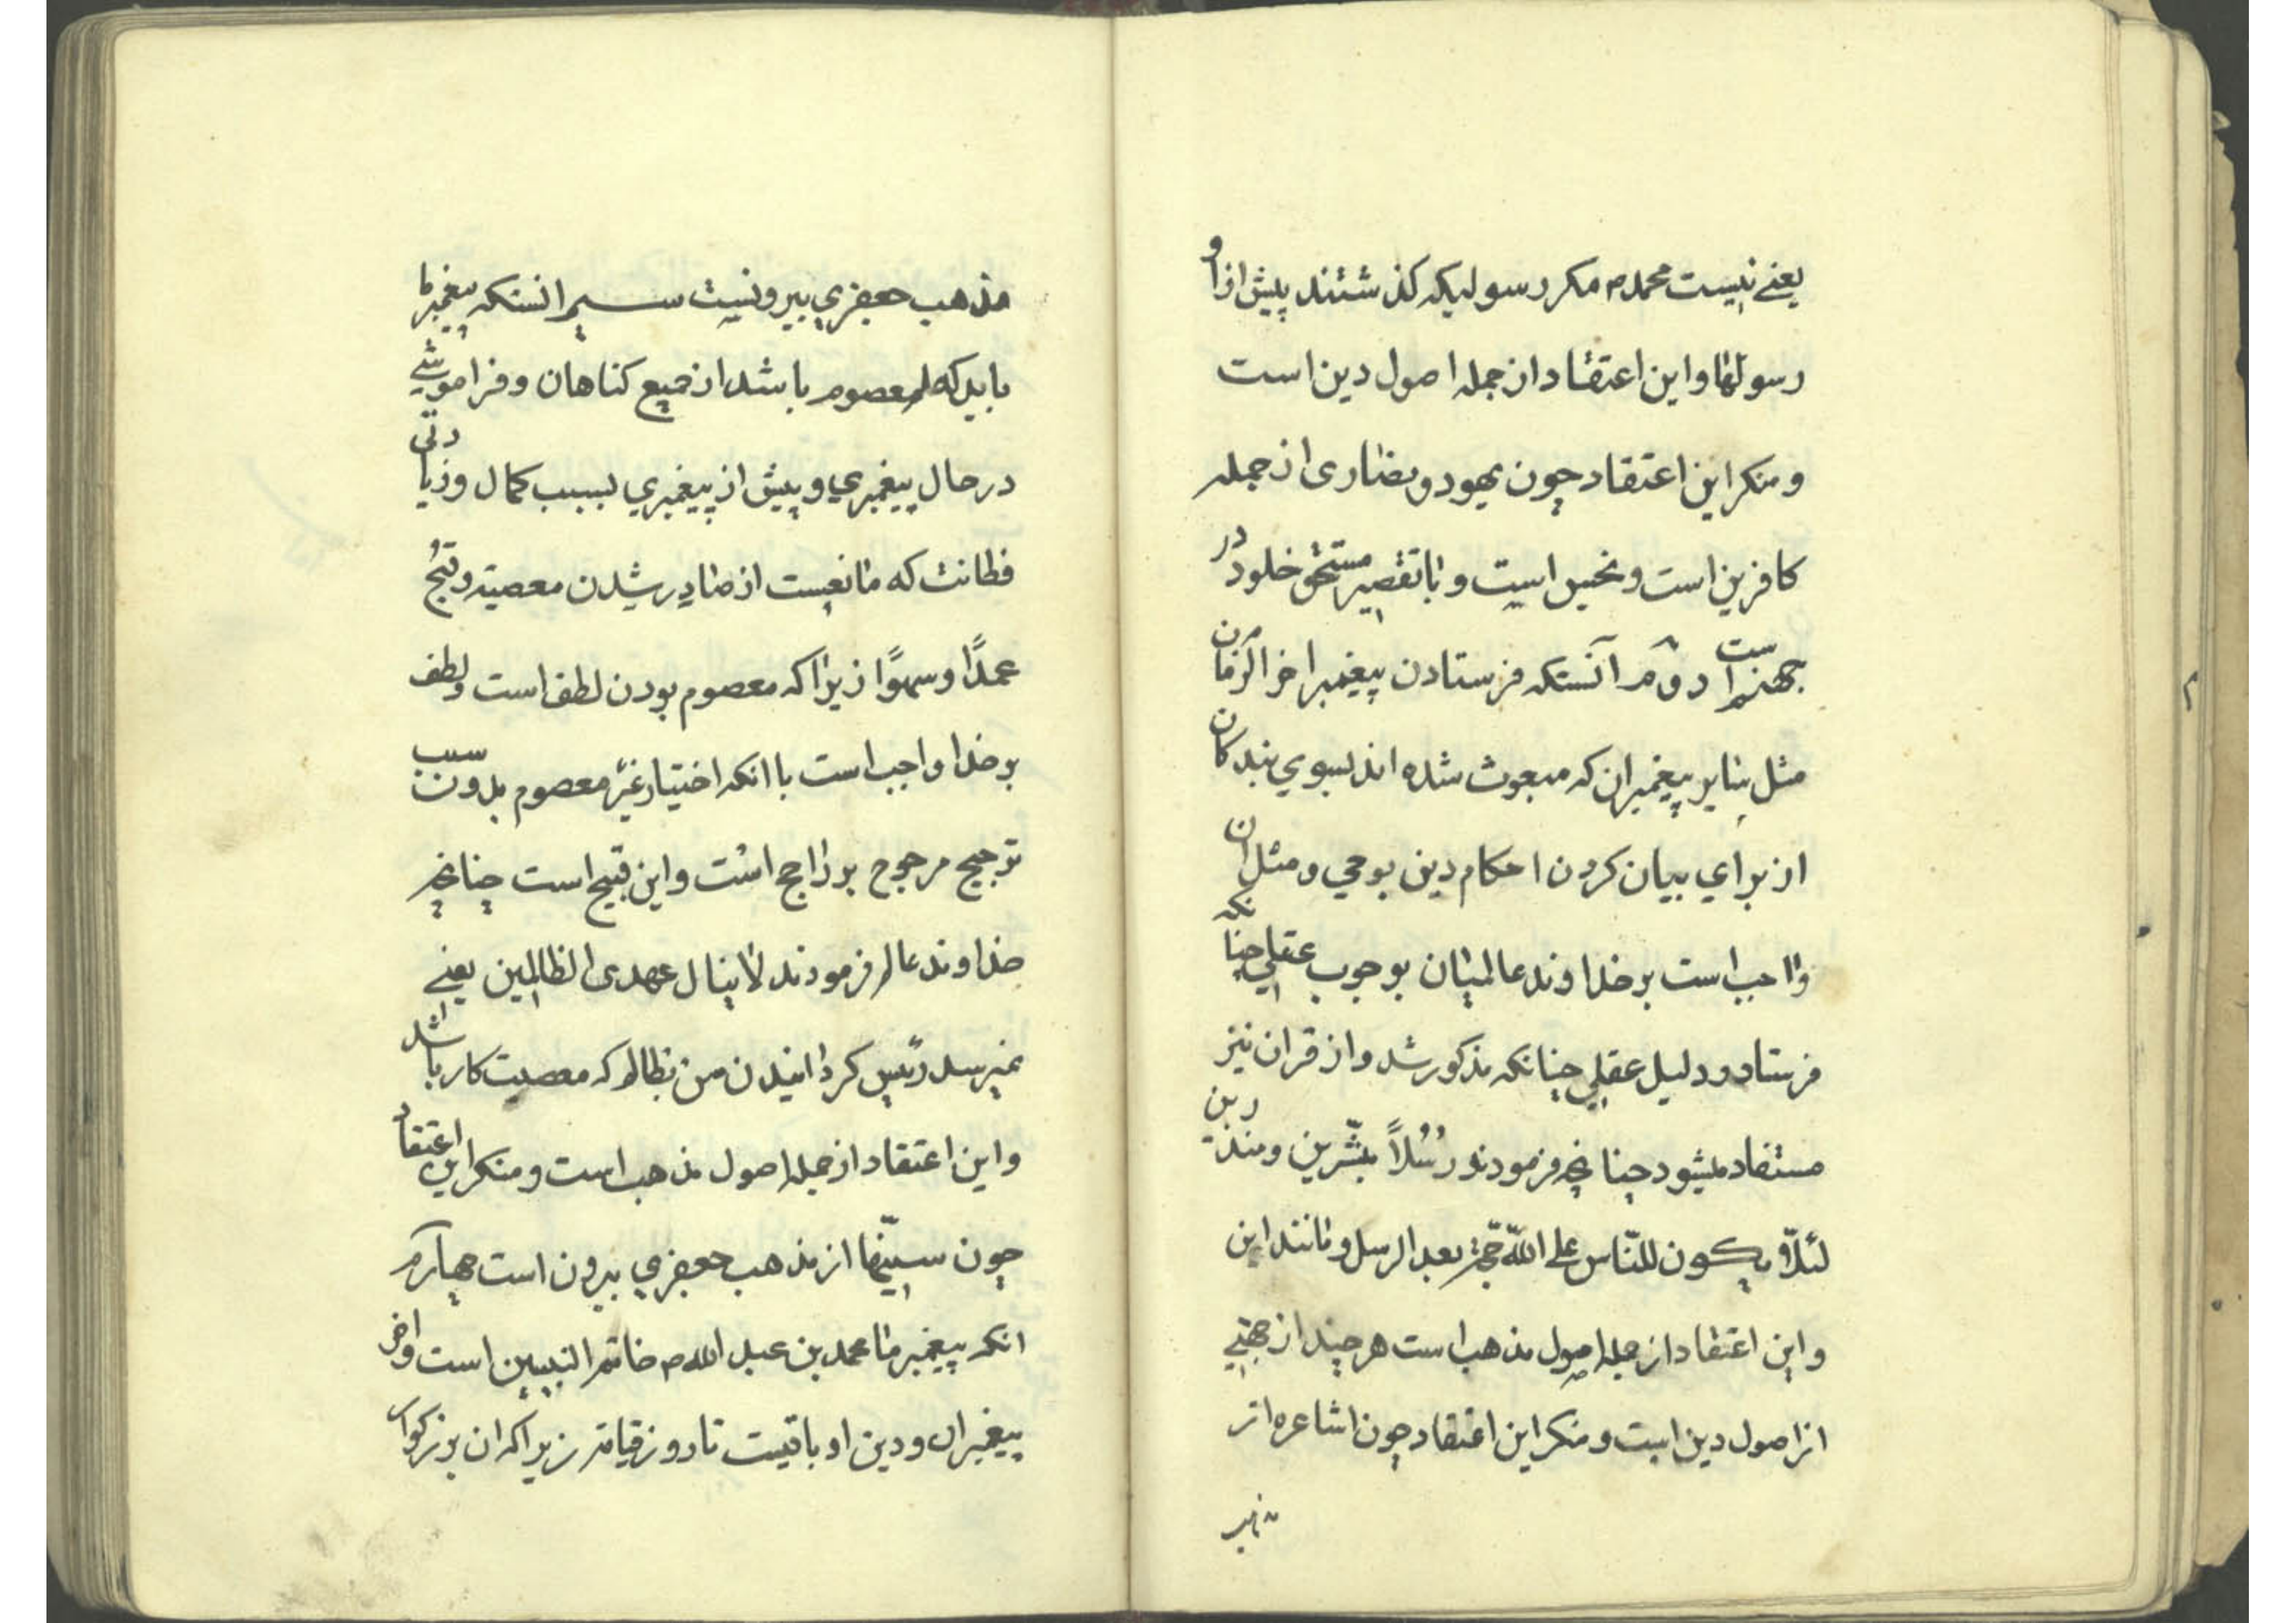 یعنے نیست محمد ص مکر رسولیکه کذشتند پیش از او
رسولها و این اعتقاد از جمله اصول دین است
و منکر این اعتقاد چون یهود و نصاری از جمله
کافرین است و نجس است و با تقصیر مستحق خلود در
جهنم است دوم آنستکه فرستادن پیغمبر اخر الزمان
مثل سایر پیغمبران که مبعوث شده اند بسوي بندکان
از براي بیان کردن احکام دین بوحي و مثل ان
واجب است بر خداوند عالمیان بوجوب عقلي چنانکه
فرستاد و دلیل عقلي چنانکه مذکور شد و از قران نیز
مستفاد میشود چنانچه فرمودند رُسُلاً مبشّرین ومنذرین
لئلّا یکون للنّاس علی اللّه حجّة بعد الرسل و مانند این
و این اعتقاد از جمله اصول مذهب است هر چند از جهتے
از اصول دین است و منکر این اعتقاد چون اشاعره از
مذهب
مذهب جعفري بیرونست سیم انستکه پیغمبر ما
باید که معصوم باشد از جمیع کناهان و فراموشے
در حال پیغمبري و پیش از پیغمبري بسبب کمال و زیادتی
فطانت که مانعست از صادر شدن معصیة و قبح
عمداً و سهواً زیرا که معصوم بودن لطف است و لطف
بر خدا واجب است با انکه اختیار غیر معصوم بدون سبب
ترجیح مرجوح بر راجح است و این قبیح است چنانچه
خداوند عالم فرمودند لا ینال عهدی الظالمین یعنے
نمیرسد رئیس کردانیدن من بظالم که معصیت کار باشد
و این اعتقاد از جمله اصول مذهب است و منکر این اعتقاد
چون سنیّها از مذهب جعفري بیرون است چهارم
انکه پیغمبر ما محمد بن عبد الله ص خاتم النبیین است و اخر
پیغمبران و دین او باقیست تا روز قیامة زیرا که ان بزرکوار